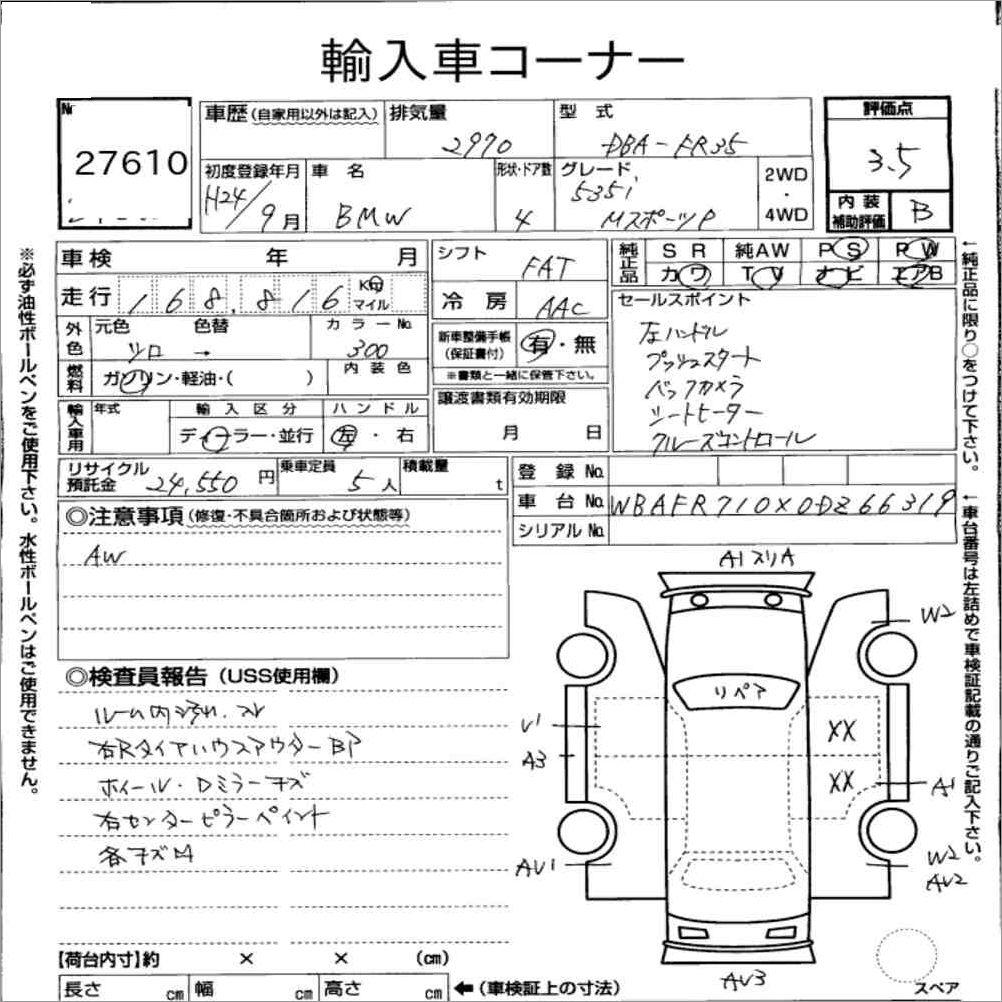 輸入車コーナー
Nr
27610
車歴(自家用以外は記入)
排気量
2970
型 式
DBA-FR35
評価点
3.5
初度登録年月
H24/9月
車 名
BMW
形状・ドア数
4
グレード
535i
MスポーツP
2WD
・
4WD
内 装
補助評価
B
車検 年 月
シフト
FAT
純正品
SR 純AW PS PW
カワ TV ナビ エアB
走行 168,816 Km マイル
冷 房
AAC
外色
元色 色替
シロ →
カラーNo.
300
新車整備手帳
(保証書付)
有・無
※書類と一緒に保管下さい。
セールスポイント
左ハンドル
プッシュスタート
バックカメラ
シートヒーター
クルーズコントロール
燃料
ガソリン・軽油・( )
内 装 色
輸入車用
年式
輸 入 区 分
ディーラー・並行
ハ ン ド ル
左・右
譲渡書類有効期限
月 日
リサイクル
預託金
24,550円
乗車定員
5人
積載量
t
登 録 No.
車 台 No.
WBAFR710X0DZ66319
シリアルNo.
◎注意事項(修復・不具合箇所および状態等)
AW
◎検査員報告(USS使用欄)
ルーム内汚れ、スレ
右RタイヤハウスアウターBP
ホイール・Dミラーキズ
右センターピラーペイント
各キズ凹
A1スリA
W2
リペア
U1
XX
A3
XX
A1
AU1
W2
AU2
AU3
スペア
【荷台内寸】約 × × (cm)
長さ cm 幅 cm 高さ cm ←(車検証上の寸法)
※必ず油性ボールペンをご使用下さい。水性ボールペンはご使用できません。
←純正品に限り○をつけて下さい。
←車台番号は左詰めで車検証記載の通りご記入下さい。